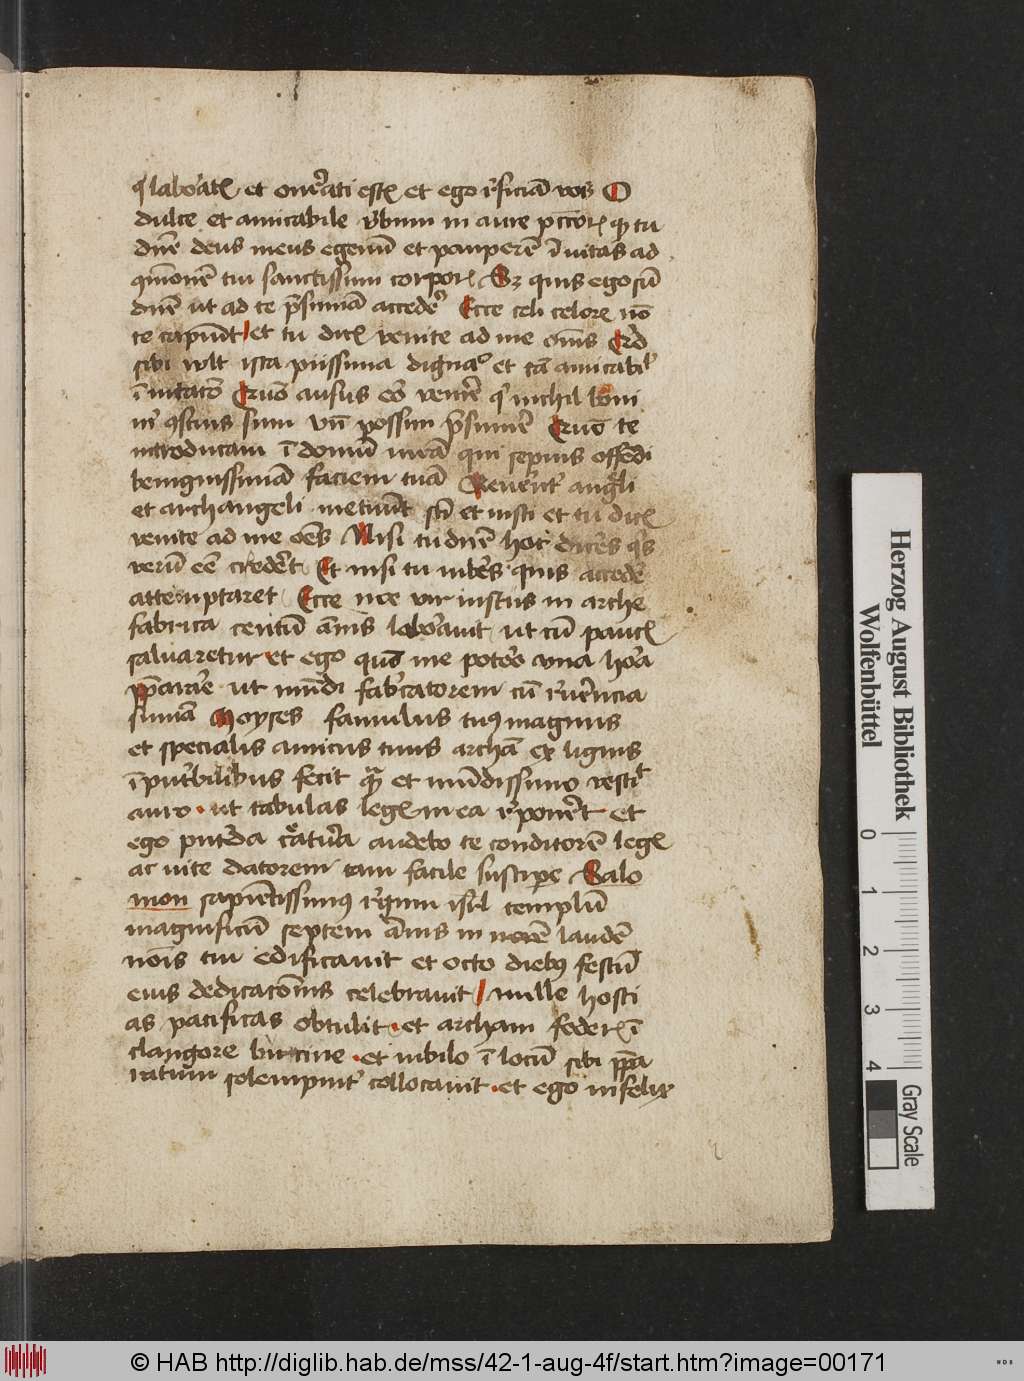 q laborat et onerati estis et ego reficiā vos O
dulce et amicabile v̉bum in aure pctoris qz tu
dn̄e deus meus egenū et pauperē ī vitas ad
cōionē tui sanctissimi corporis Sz quis ego sū
dn̄e ut ad te p̄sumā accedē Ecce celi celorꝫ nō
te capiūt et tu dicis venite ad me om̄s Qͥd
sibi vult ista piissima dignaͦ et tā amicabilꝭ
ī uitacō Quō ausus ero venire qͥ nichil boni
mͥ ꝯscius sum vn̄ possum p̄sumē Quō te
introducam ī domū meā qui sepius offēdi
benignissimā faciem tuā Reverent᷑ angeli
et archangeli metuūt sc̄i et iusti et tu dicis
venite ad me oēs Nisi tu dn̄e hoc diceres qͥs
verū eē crederet Et nisi tu iuberes quis accedē
attemptaret Ecce noe vir iustus in arche
fabrica centū ānis laboravit ut cū paucis
salvaretur et ego quō me potero una hora
p̄parare ut mūdi fabͥcatorem cū reverēncia
sumā Moyses famulus tuꝰ magnus
et specialis amicus tuus archā ex lignis
īputͥbilibus fecit quā et mūdissimo vestiͭ
auro ut tabulas legis in ea reponeret et
ego putrida creatura audebo te conditorē legis
ac vite datorem tam facile suscipe Salo
mon sapiētissimꝰ regum isrl templū
magnificū septem ānis in laudē
nōis tui edificauit et octo diebꝰ festū
eius dedicacōnis celebrauit mille hosti
as pacificas obtulit et archam federis ī
clangore buccine et iubilo ī locū sibi p̄pa
ratum solempnit᷑ collocauit et ego infelix
Herzog August Bibliothek
Wolfenbüttel
0 1 2 3 4
Gray Scale
© HAB http://diglib.hab.de/mss/42-1-aug-4f/start.htm?image=00171